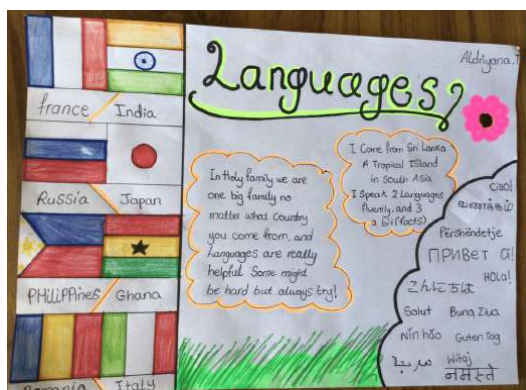 Languages
Aldriyana.
France
India
Russia
Japan
PHiliPPines
Ghana
Romania
Italy
In Holy family we are
one big family no
matter what Country
you come from, and
Languages are really
helpful Some might
be hard but always try!
I Come from Sri Lanka
A Tropical Island
in South Asia
I Speak 2 Languages
fluently, and 3
a bit (facts)
Ciao!
வணக்கம்
Përshëndetje
ПРИВЕТ
HOLa!
こんにちは
Salut
Buna Ziua
Nín hǎo
Guten Tag
Witaj
नमस्ते